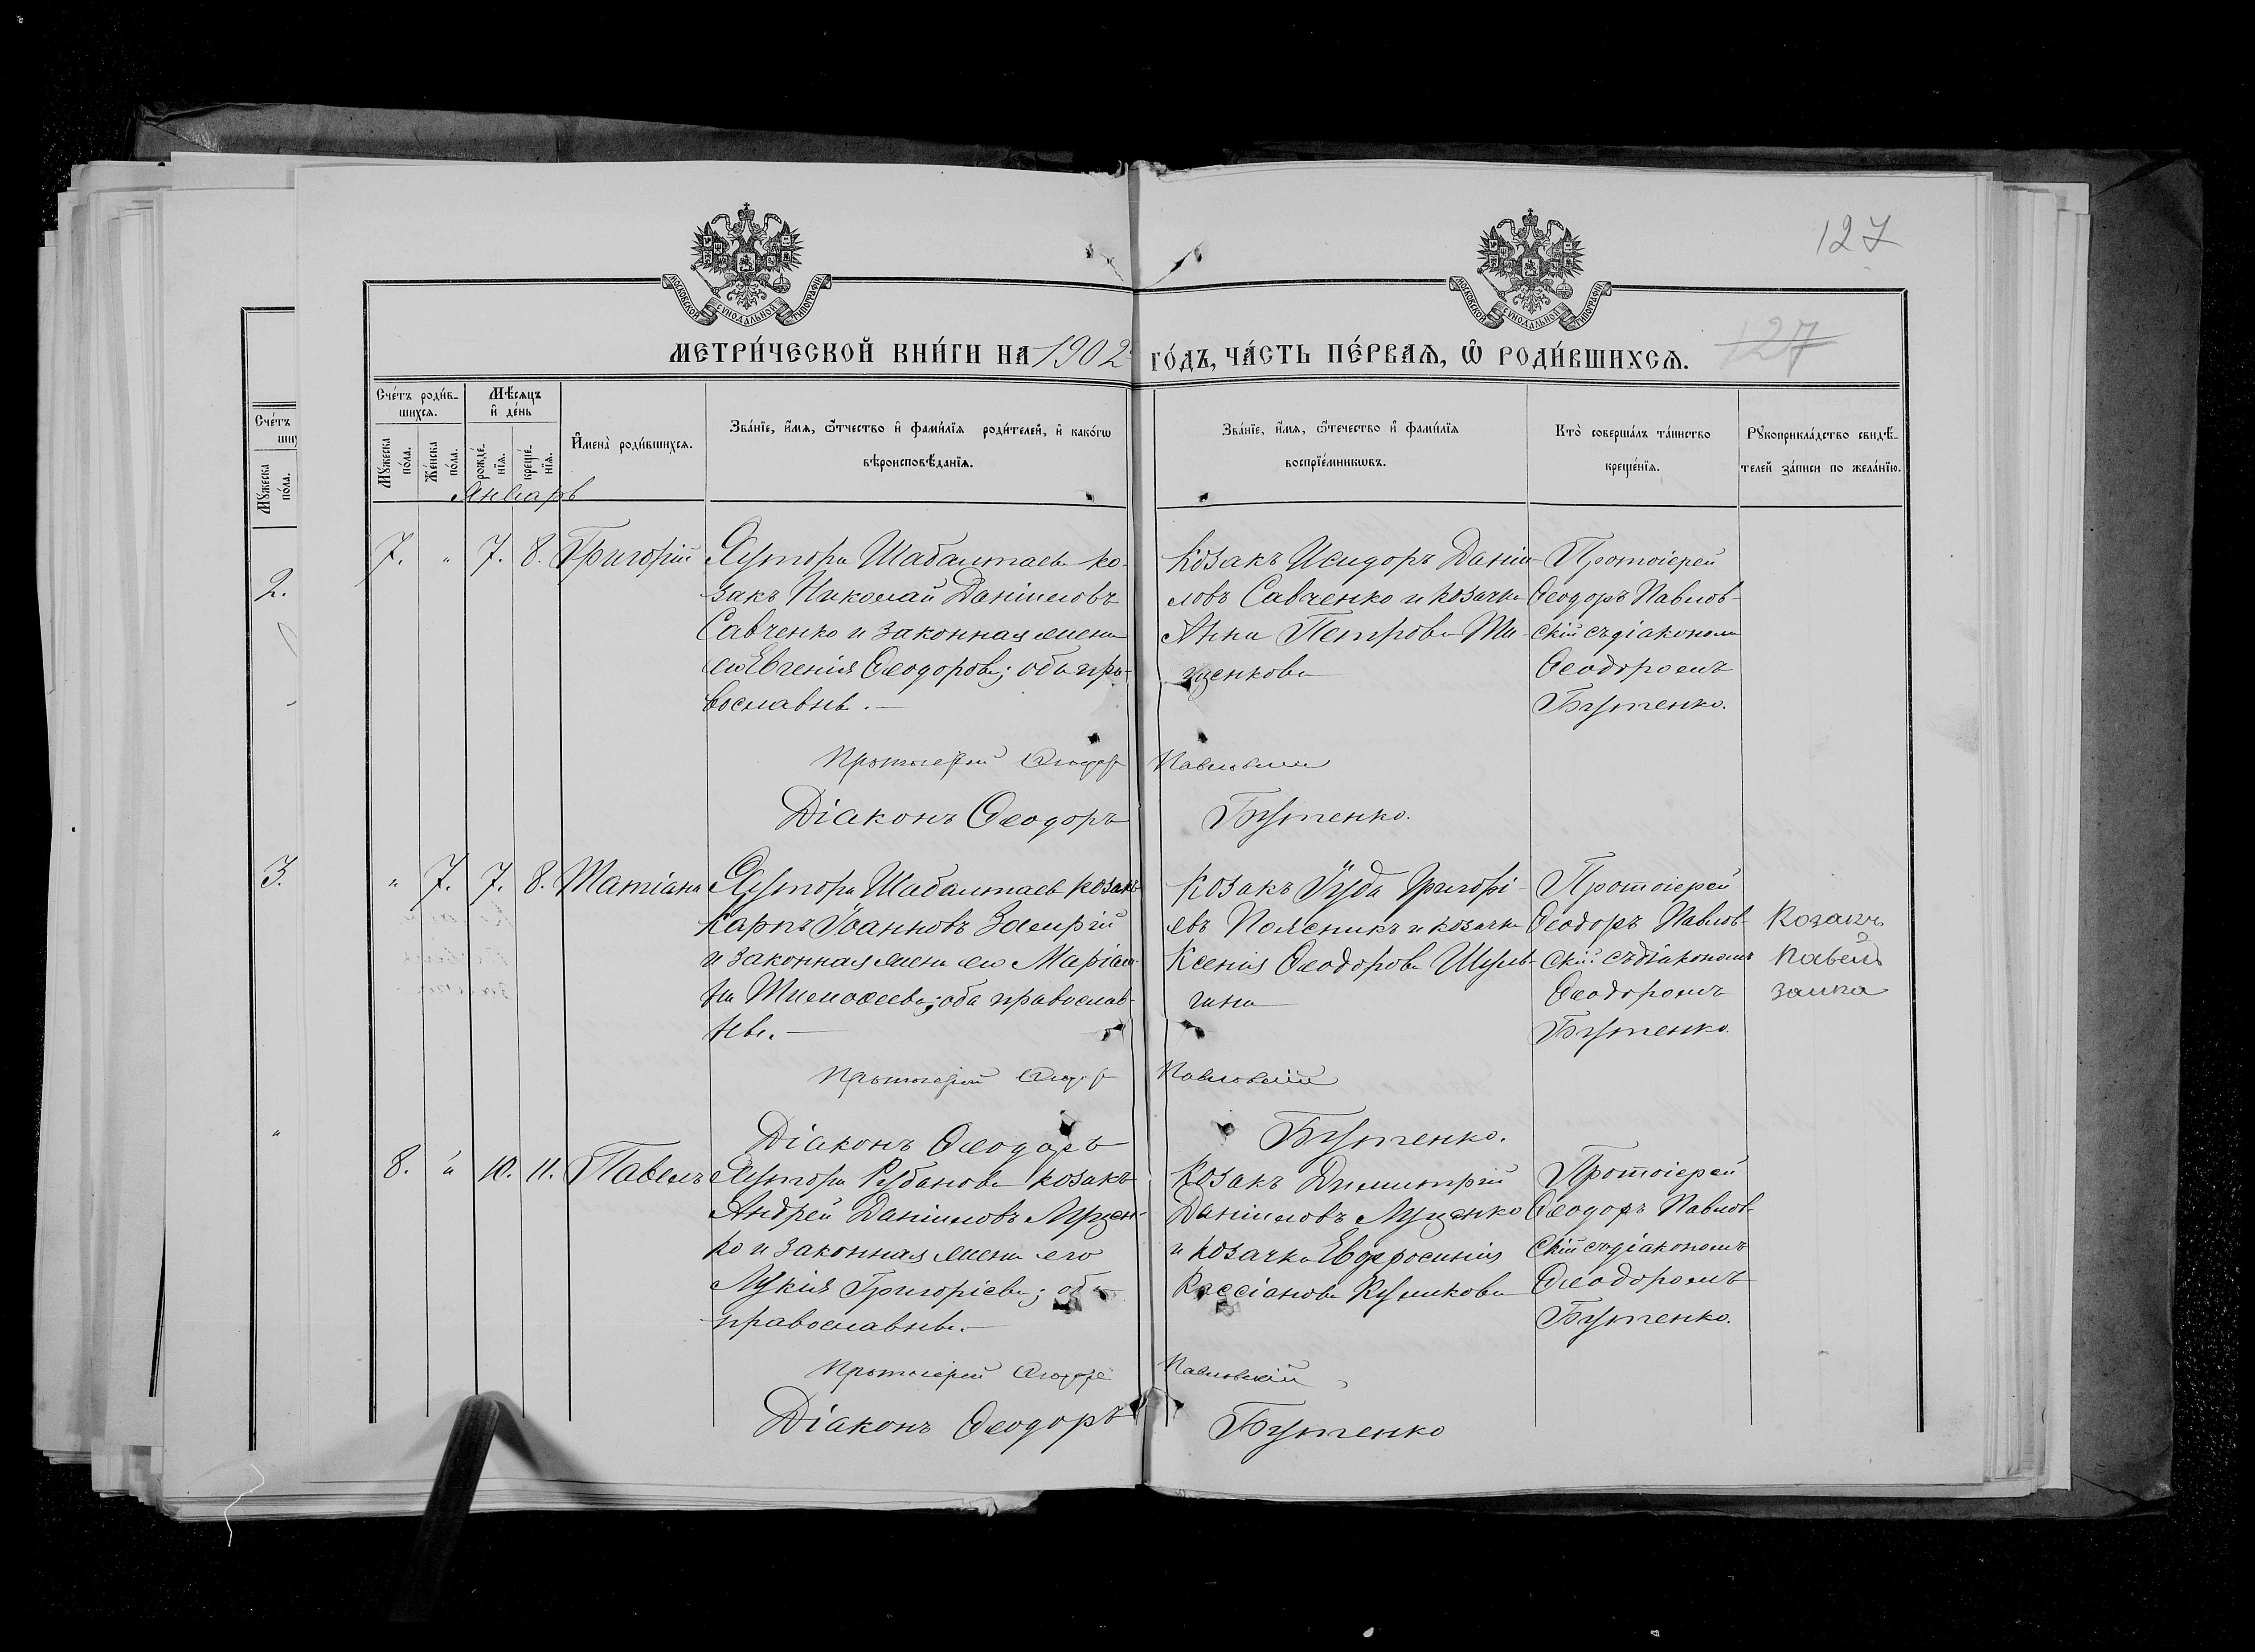 127
МОСКОВСКОЙ СѴНОДАЛЬНОЙ ТИПОГРАФІИ
МОСКОВСКОЙ СѴНОДАЛЬНОЙ ТИПОГРАФІИ
МЕТРИ́ЧЕСКОЙ КНИ́ГИ НА 1902 ГО́ДЪ, ЧА́СТЬ ПЕ́РВАѦ, Ѡ҆ РОДИ́ВШИХСѦ.
127
Сче́тъ роди́в-
шихсѧ.
Мѣ́сѧцъ
и҆ де́нь
Мꙋ́жеска по́ла.
Же́нска по́ла.
рожде́-нїѧ.
креще́-нїѧ.
И҆мена̀ роди́вшихсѧ.
Зва́нїе, и҆́мѧ, ѻ҆́тчество и҆ фами́лїѧ роди́телей, и҆ како́гѡ
вѣроисповѣ́данїѧ.
Зва́нїе, и҆́мѧ, ѻ҆́течество и҆ фами́лїѧ
воспрїе́мникѡвъ.
Кто̀ соверша́лъ та́инство
креще́нїѧ.
Рꙋкоприкла́дство свидѣ́-
телей за́писи по жела́нїю.
Сче́тъ
Мꙋ́жеска по́ла.
2.
3.
"
Январь
7. " 7. 8. Григорій
Хутора Шабалтаева ко-
закъ Николай Даніиловъ
Савченко и законная жена
его Евгенія Ѳеодорова; оба пра-
вославны.—
Козакъ Исидоръ Даніи-
ловъ Савченко и козачка
Анна Петрова Ти-
щенкова
Протоіерей
Ѳеодоръ Павлов-
скій съ діакономъ
Ѳеодоромъ
Бутенко.
Протоіерей Ѳеодоръ Павловскій
Діаконъ Ѳеодоръ Бутенко.
" 7. 7. 8. Татіана
Хутора Шабалтаева козакъ
Карпъ Іоанновъ
и законная жена его Маріам-
на Тимоѳеева; оба православ-
ны.—
Козакъ Іуда Григорі-
евъ Поясникъ и козачка
Ксенія Ѳеодорова Шуль-
гина
Протоіерей
Ѳеодоръ Павлов-
скій съ діакономъ
Ѳеодоромъ
Бутенко.
Козакъ
Павелъ
заика
Протоіерей Ѳеодоръ Павловскій
Діаконъ Ѳеодоръ Бутенко.
8. " 10. 11. Павелъ
Хутора Рубанова козакъ
Андрей Даніиловъ Луцен-
ко и законная жена его
Лукія Григоріева; оба
православны.—
Козакъ Димитрій
Даніиловъ Луценко
и козачка Евфросинія
Кассіанова Куликова
Протоіерей
Ѳеодоръ Павлов-
скій съ діакономъ
Ѳеодоромъ
Бутенко.
Протоіерей Ѳеодоръ Павловскій
Діаконъ Ѳеодоръ Бутенко